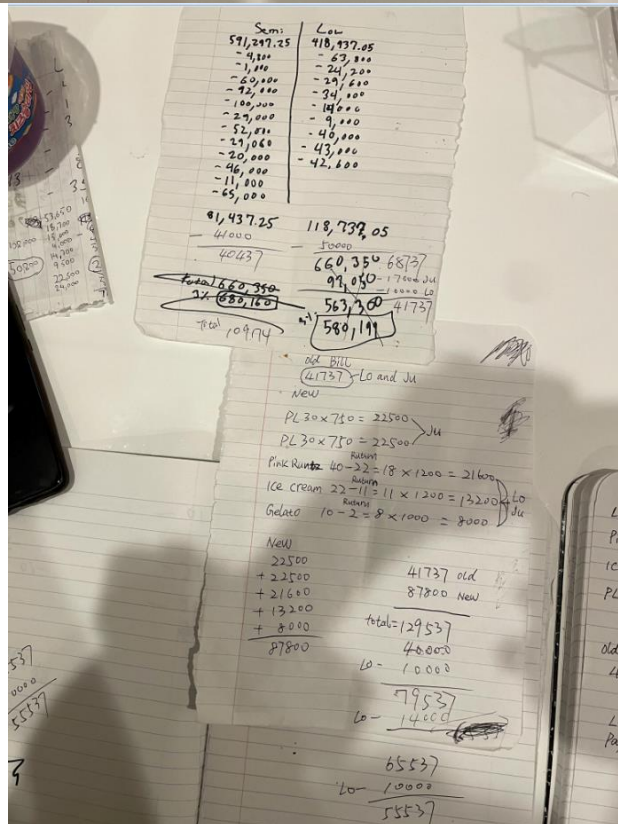 Semi Lou
591,297.25 418,937.05
- 4,800 - 63,800
- 1,000 - 24,200
- 60,000 - 29,600
- 92,000 - 34,000
- 100,000 - 14000
- 29,000 - 9,000
- 52,000 - 40,000
- 29,060 - 43,000
- 20,000 - 42,600
- 46,000
- 11,000
- 65,000
81,437.25 118,737.05
- 41000 - 50000
40437 660,350 68737
97,050 - 17000 Ju
- 10000 Lo
660,350 563,300 41737
3% 680,160
580,199
Total
old Bill
41737 Lo and Ju
New
PL 30 x 750 = 22500
Ju
PL 30 x 750 = 22500
Ruturn
Pink Runtz 40 - 22 = 18 x 1200 = 21600
Ruturn
Ice cream 22 - 11 = 11 x 1200 = 13200 Lo
Ruturn
Gelato 10 - 2 = 8 x 1000 = 8000 Ju
New
22500 41737 old
+ 22500 87800 New
+ 21600
+ 13200 total = 129537
+ 8000 40000
87800 Lo - 10000
79537
Lo - 14000
65537
Lo- 10000
55537
53,650
18,700
4,000
14,700
50200 9,500
22500
24,000
537
0000
55537